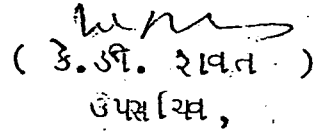 ( કે.ડી. રાવત )
ઉપસચિવ,